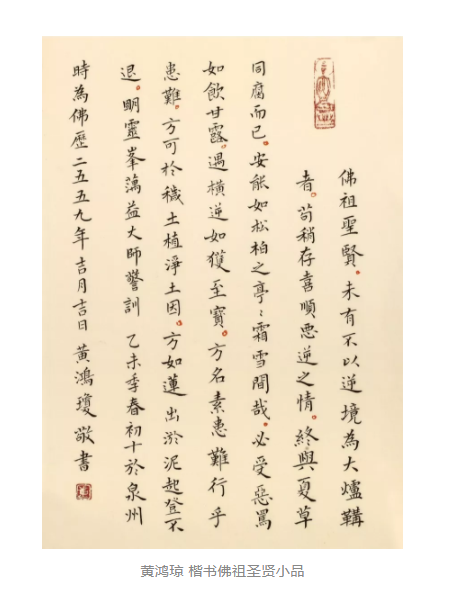 佛祖聖賢。未有不以逆境為大爐鞲
者。苟稍存喜順悪逆之情。終與夏草
同腐而已。安能如松柏之亭〻霜雪間哉。必受惡罵
如飲甘露。遇橫逆如獲至寶。方名素患難行乎
患難。方可於穢土植淨土因。方如蓮出淤泥起登不
退。明靈峯蕅益大師警訓 乙未季春初十於泉州
時為佛歷二五五九年吉月吉日黃鴻瓊敬書
黄鸿琼 楷书佛祖圣贤小品